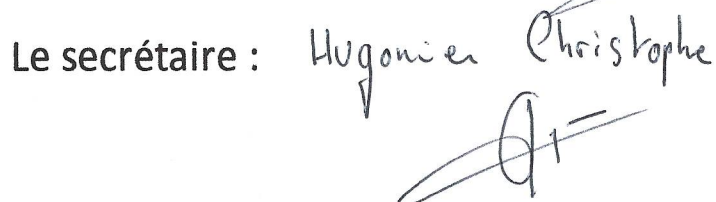 Le secrétaire : Hugonier Christophe